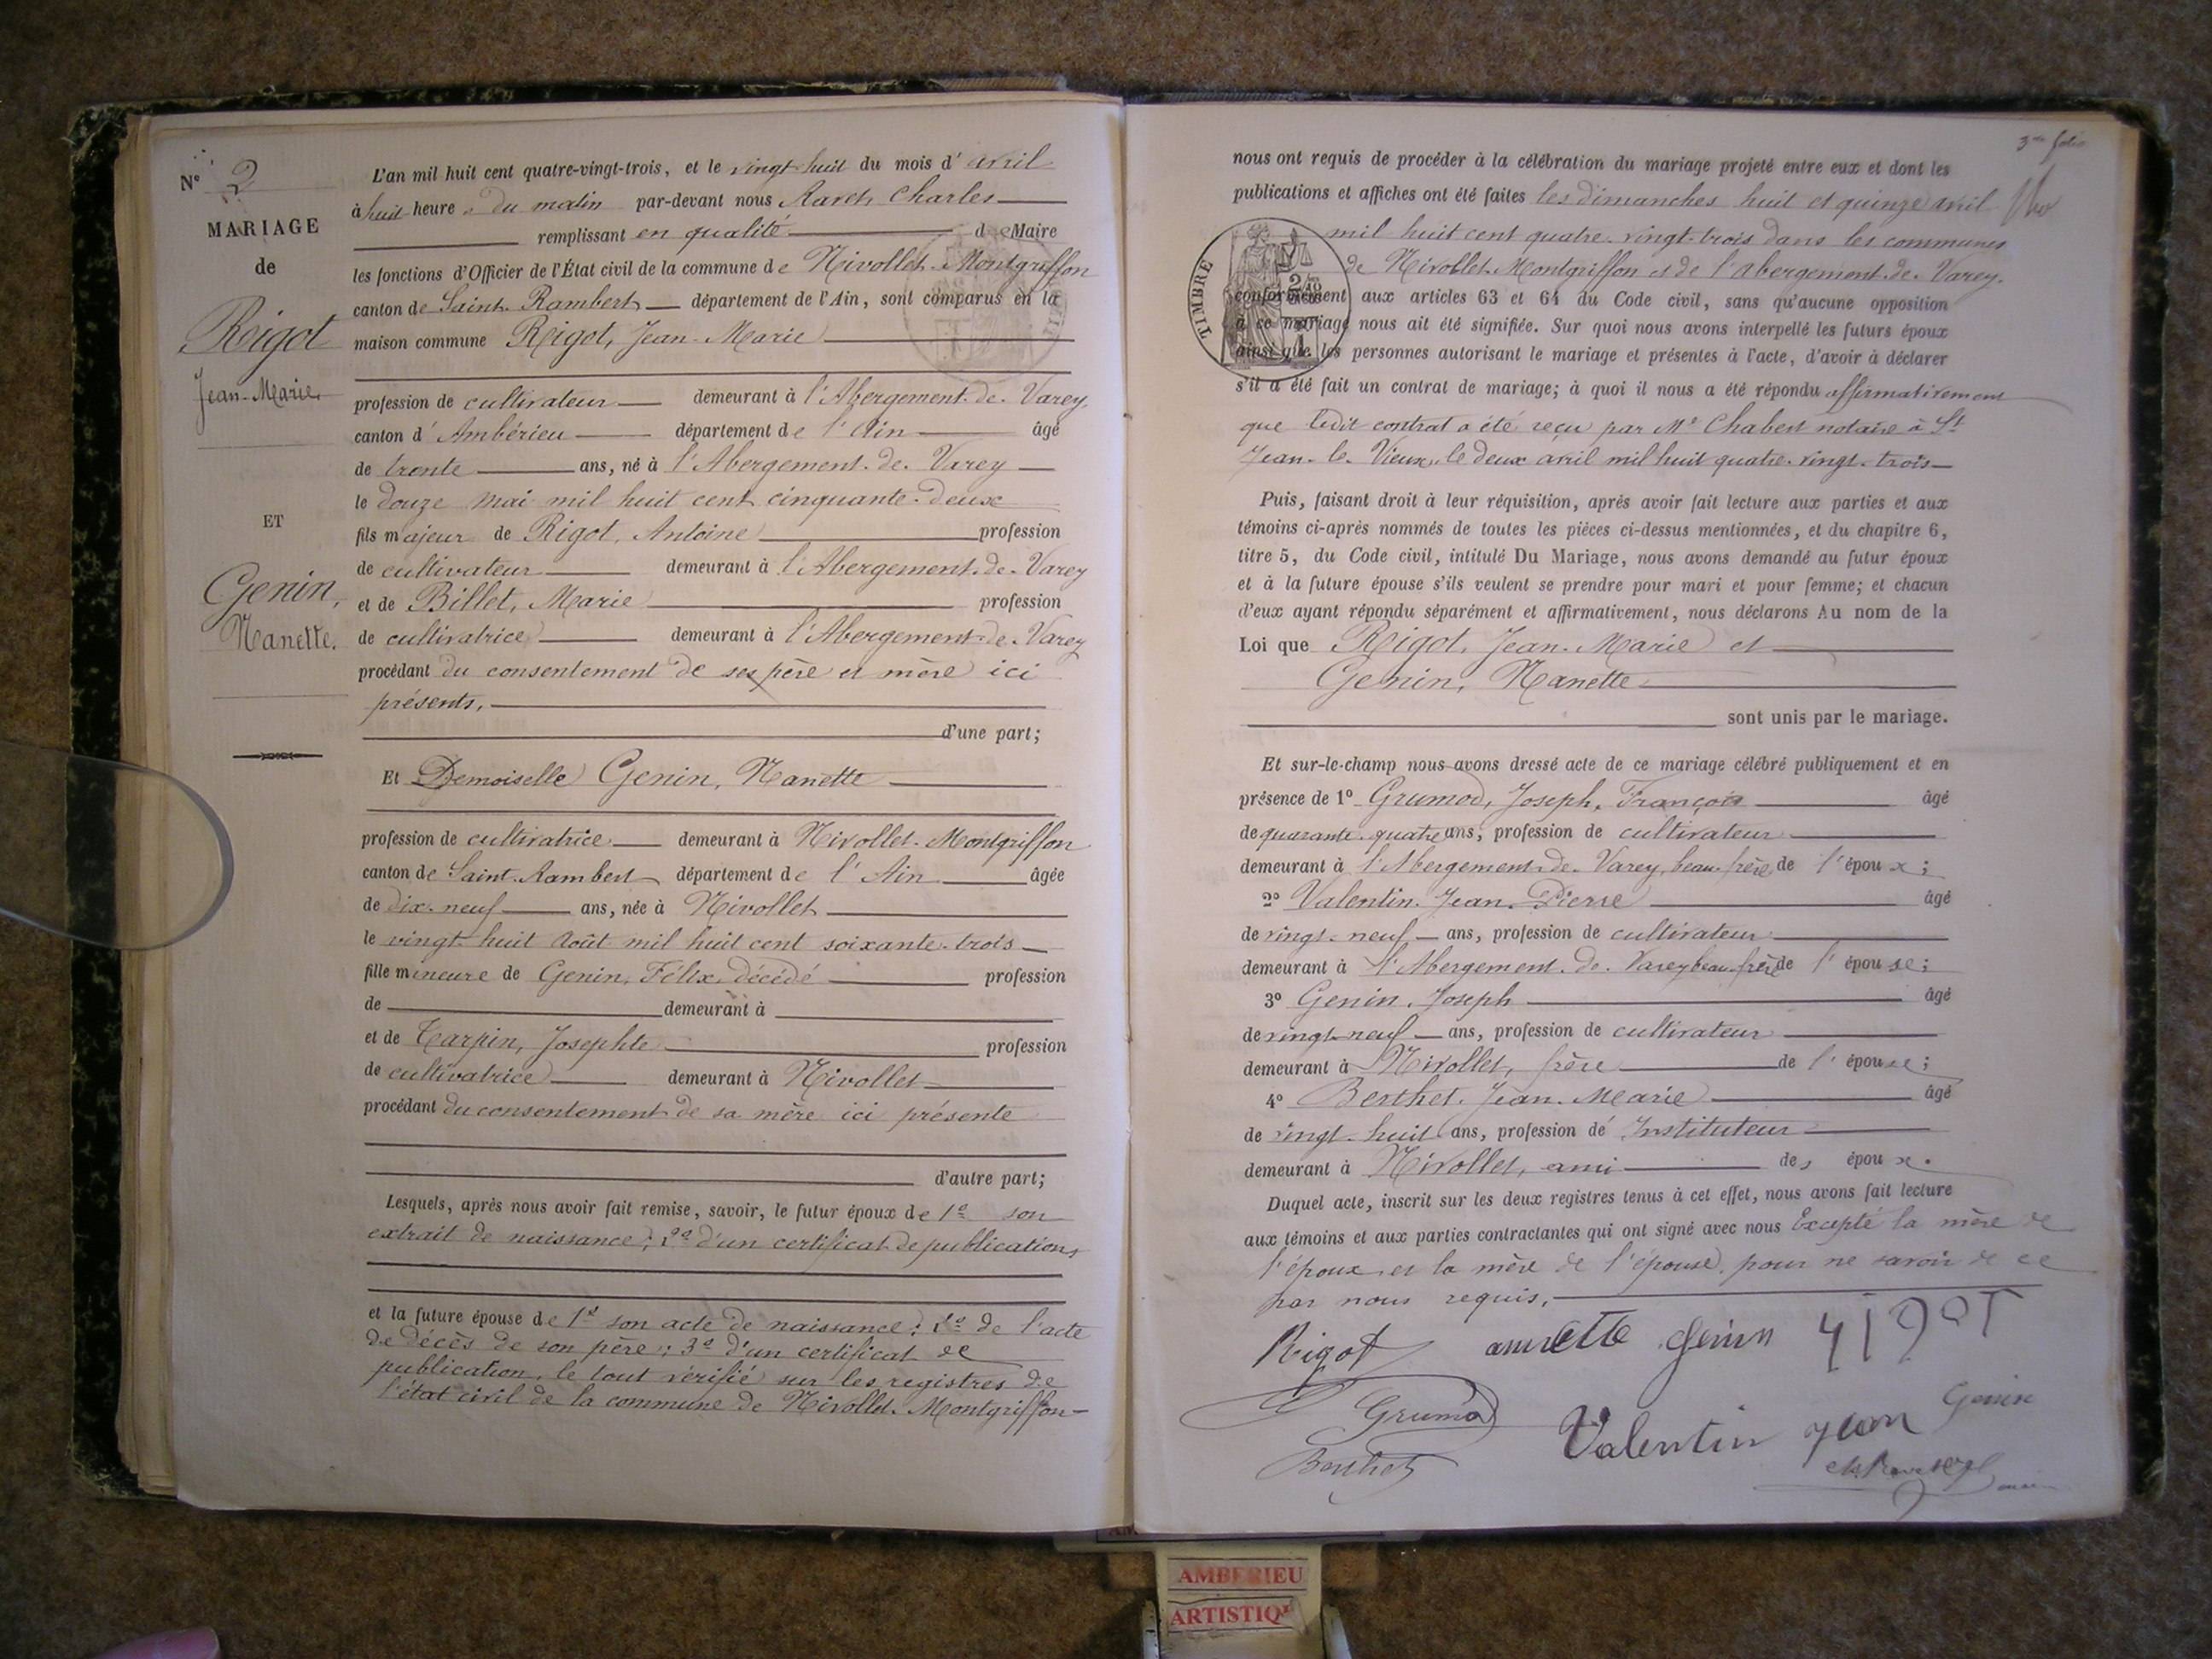 N° 2
MARIAGE
de
Rigot
Jean-Marie
ET
Genin,
Nanette.
L'an mil huit cent quatre-vingt-trois, et le vingt-huit du mois d'avril
à huit heures du matin par-devant nous Ravet, Charles
remplissant en qualité de Maire
les fonctions d'Officier de l'État civil de la commune de Nivollet-Montgriffon
canton de Saint-Rambert département de l'Ain, sont comparus en la
maison commune Rigot, Jean-Marie
profession de cultivateur demeurant à l'Abergement-de-Varey,
canton d'Ambérieu département de l'Ain âgé
de trente ans, né à l'Abergement-de-Varey
le douze mai mil huit cent cinquante-deux
fils majeur de Rigot, Antoine profession
de cultivateur demeurant à l'Abergement-de-Varey
et de Billet, Marie profession
de cultivatrice demeurant à l'Abergement-de-Varey
procédant du consentement de ses père et mère ici
présents,
d'une part;
Et Demoiselle Genin, Nanette
profession de cultivatrice demeurant à Nivollet-Montgriffon
canton de Saint-Rambert département de l'Ain âgée
de dix-neuf ans, née à Nivollet
le vingt-huit août mil huit cent soixante-trois
fille mineure de Genin, Félix, décédé profession
de demeurant à
et de Tarpin, Josephte profession
de cultivatrice demeurant à Nivollet
procédant du consentement de sa mère ici présente
d'autre part;
Lesquels, après nous avoir fait remise, savoir, le futur époux de 1° son
extrait de naissance; 2° d'un certificat de publications
et la future épouse de 1° son acte de naissance; 2° de l'acte
de décès de son père; 3° d'un certificat de
publication, le tout vérifié sur les registres de
l'état civil de la commune de Nivollet-Montgriffon
3me folio
nous ont requis de procéder à la célébration du mariage projeté entre eux et dont les
publications et affiches ont été faites les dimanches huit et quinze avril
mil huit cent quatre-vingt-trois dans les communes
de Nivollet-Montgriffon et de l'Abergement-de-Varey.
TIMBRE
conformément aux articles 63 et 64 du Code civil, sans qu'aucune opposition
à ce mariage nous ait été signifiée. Sur quoi nous avons interpellé les futurs époux
ainsi que les personnes autorisant le mariage et présentes à l'acte, d'avoir à déclarer
s'il a été fait un contrat de mariage; à quoi il nous a été répondu affirmativement
que ledit contrat a été reçu par Me Chabert notaire à St
Jean-le-Vieux, le deux avril mil huit quatre-vingt-trois
Puis, faisant droit à leur réquisition, après avoir fait lecture aux parties et aux
témoins ci-après nommés de toutes les pièces ci-dessus mentionnées, et du chapitre 6,
titre 5, du Code civil, intitulé Du Mariage, nous avons demandé au futur époux
et à la future épouse s'ils veulent se prendre pour mari et pour femme; et chacun
d'eux ayant répondu séparément et affirmativement, nous déclarons Au nom de la
Loi que Rigot, Jean-Marie et
Genin, Nanette
sont unis par le mariage.
Et sur-le-champ nous avons dressé acte de ce mariage célébré publiquement et en
présence de 1° Grumod, Joseph, François âgé
de quarante-quatre ans, profession de cultivateur
demeurant à l'Abergement-de-Varey, beau-frère de l'époux;
2° Valentin, Jean-Pierre âgé
de vingt-neuf ans, profession de cultivateur
demeurant à l'Abergement-de-Varey beau-frère de l'épouse;
3° Genin, Joseph âgé
de vingt-neuf ans, profession de cultivateur
demeurant à Nivollet, frère de l'épouse;
4° Berthet, Jean-Marie âgé
de vingt-huit ans, profession de Instituteur
demeurant à Nivollet, ami des époux.
Duquel acte, inscrit sur les deux registres tenus à cet effet, nous avons fait lecture
aux témoins et aux parties contractantes qui ont signé avec nous Excepté la mère de
l'époux et la mère de l'épouse, pour ne savoir de ce
par nous requis,
Rigot Genin
Grumod Genin
Valentin jean
Berthet
AMBERIEU
ARTISTIQ